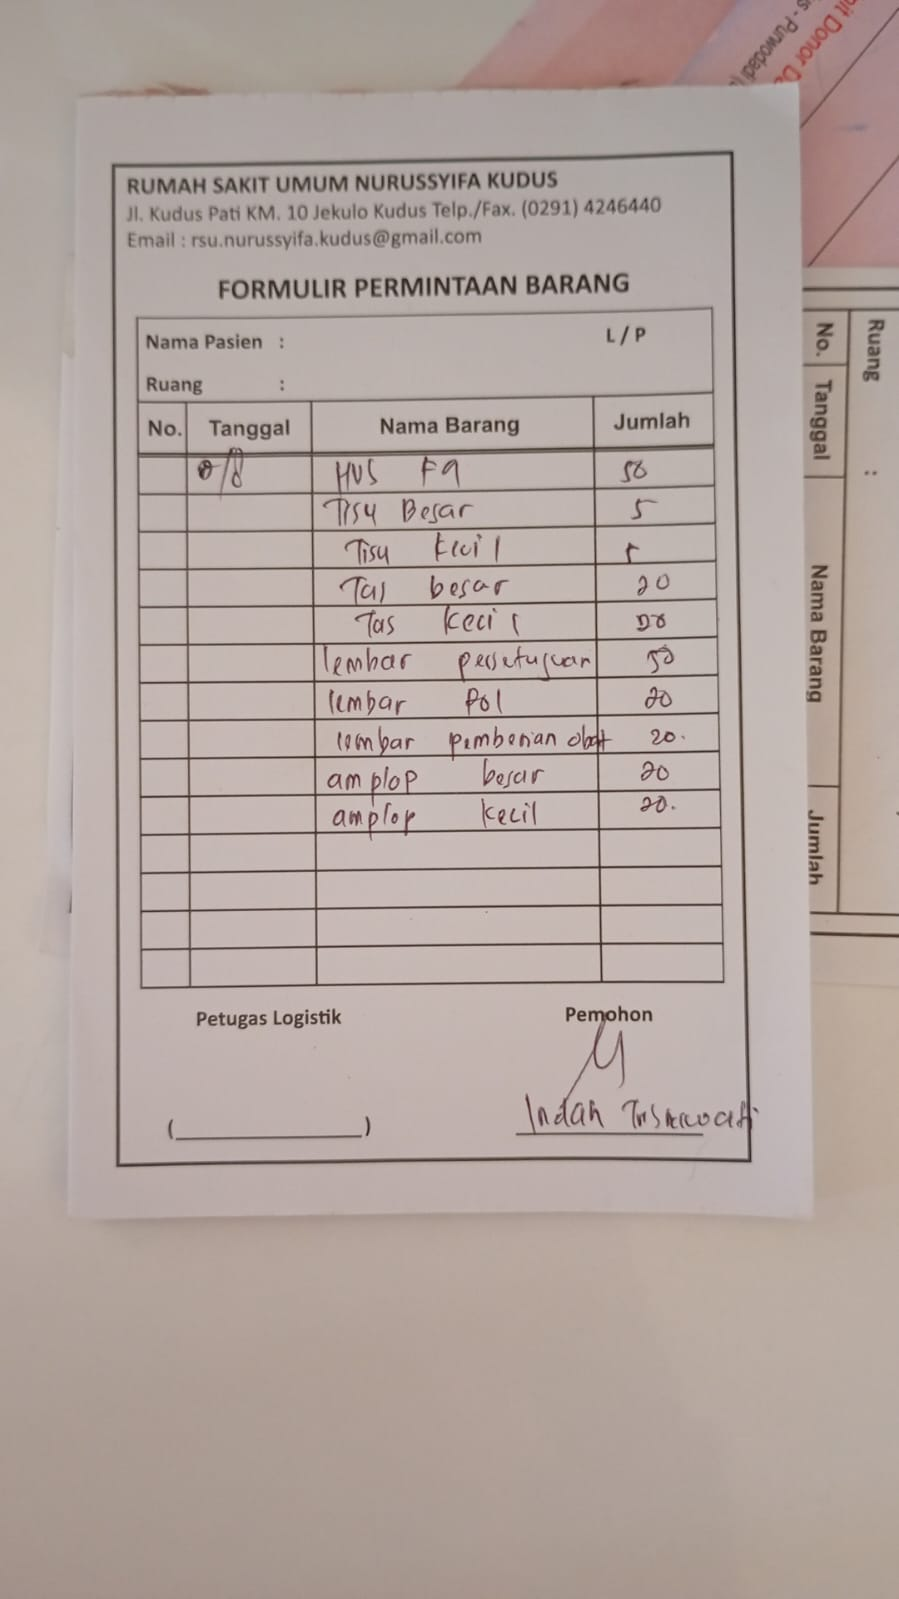 RUMAH SAKIT UMUM NURUSSYIFA KUDUS
Jl. Kudus Pati KM. 10 Jekulo Kudus Telp./Fax. (0291) 4246440
Email : rsu.nurussyifa.kudus@gmail.com
FORMULIR PERMINTAAN BARANG
Nama Pasien : L / P
Ruang :
No. Tanggal Nama Barang Jumlah
HVS F4 50
Tisu Besar 5
Tisu kecil 5
Tas besar 20
Tas kecil
lembar persetujuan 50
lembar Pol 20
lembar pemberian obat 20.
amplop besar 20
amplop kecil 20.
Petugas Logistik Pemohon
Indah
(____________)
Unit Donor
- Purwodadi
Ruang :
No. Tanggal Nama Barang Jumlah